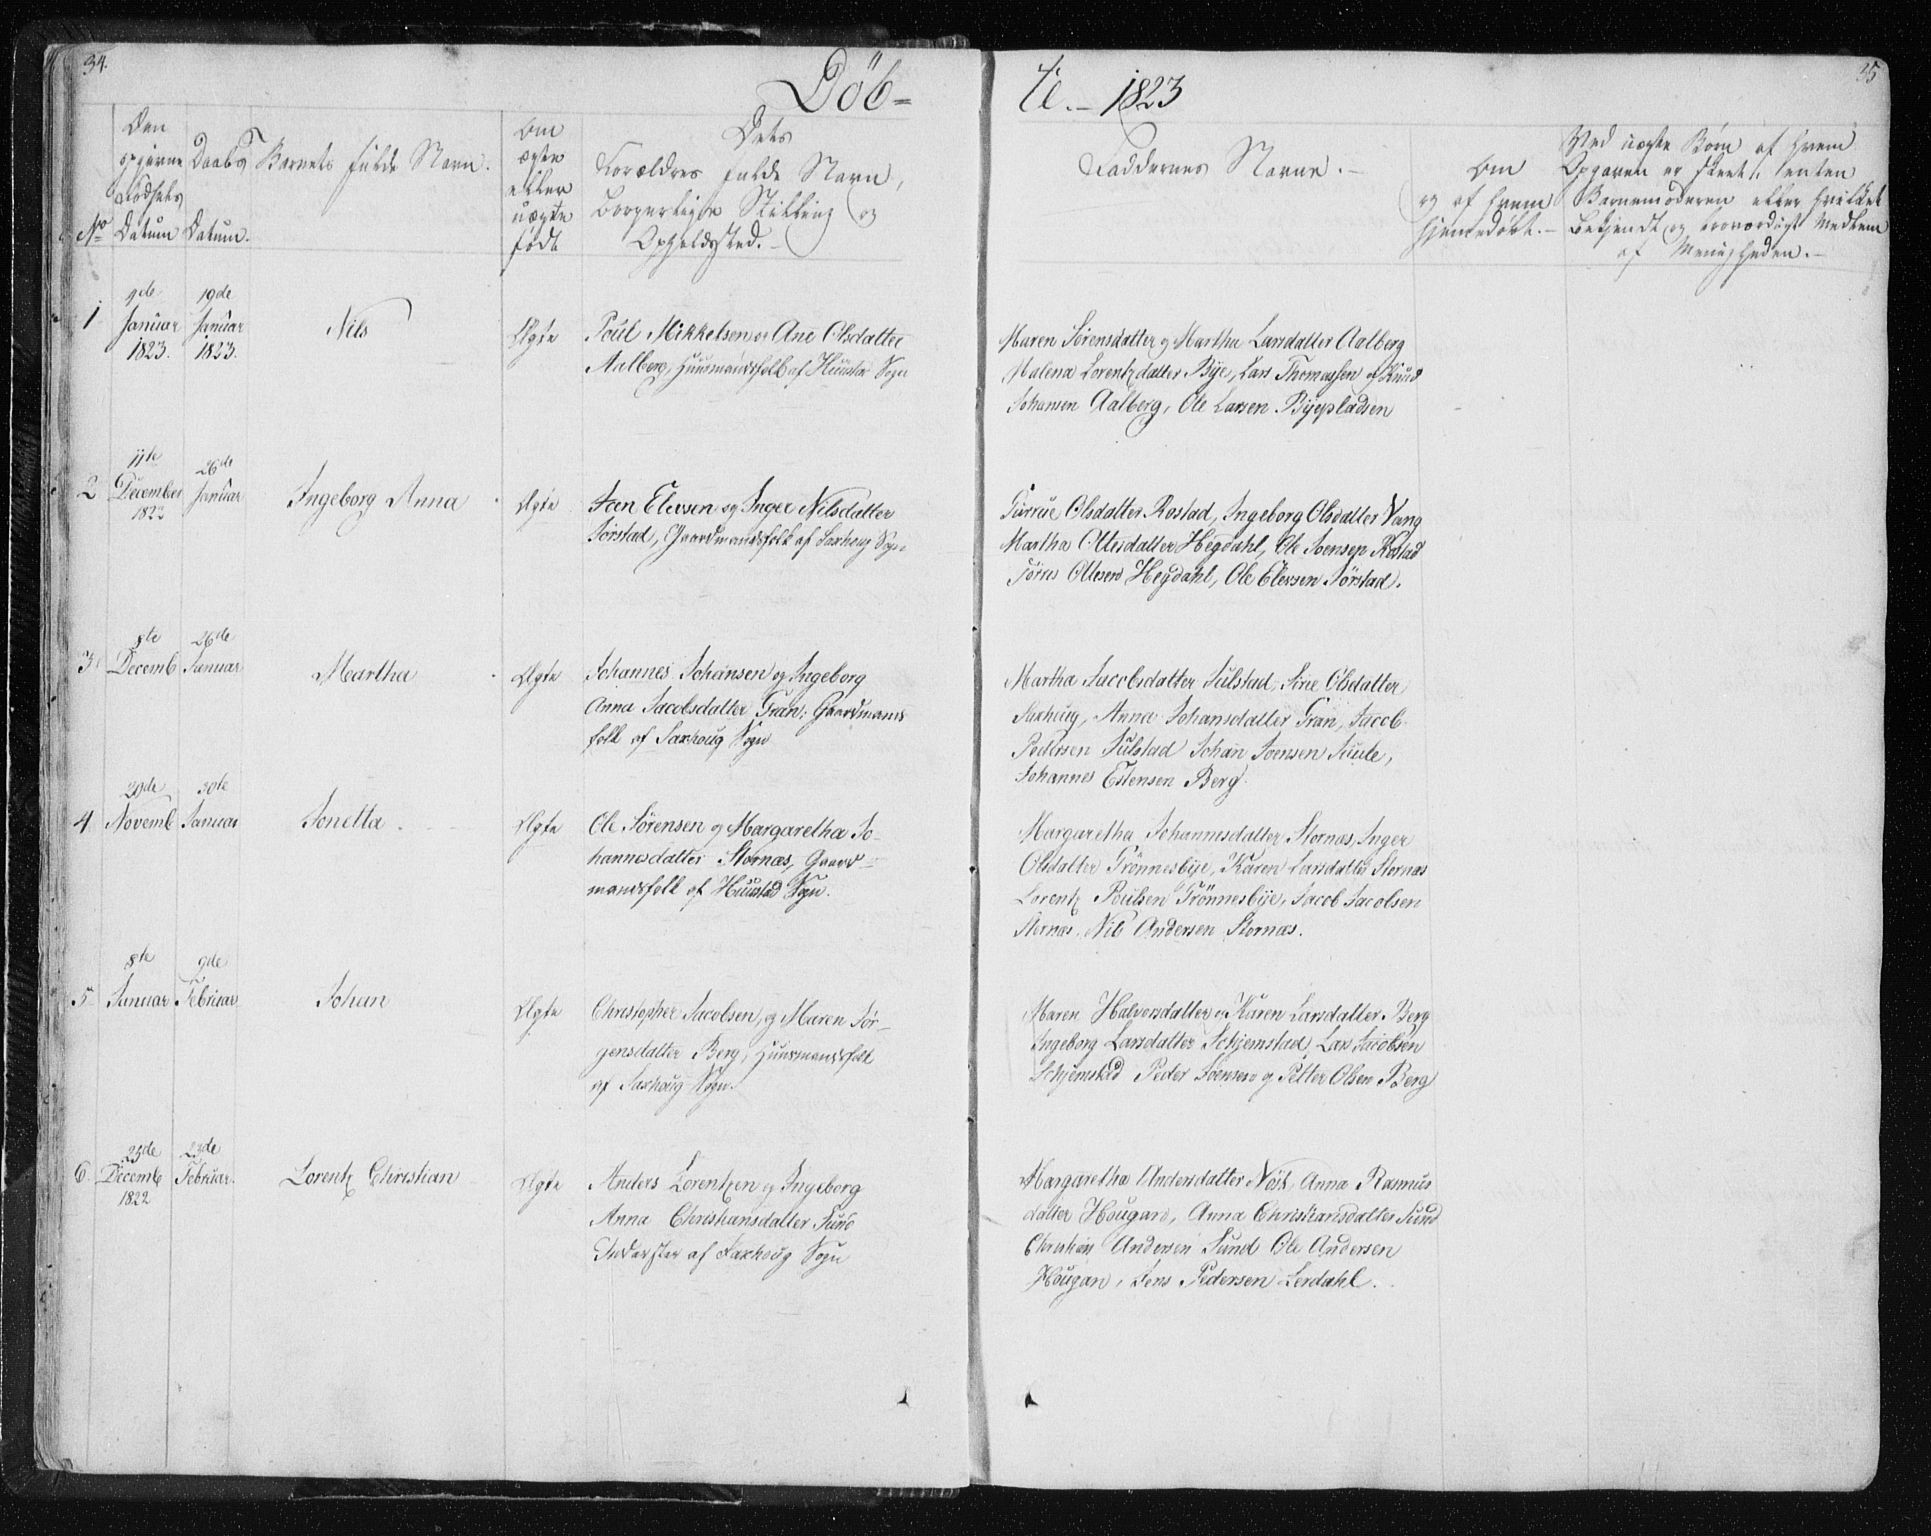 34.
Döb=
te. – 1823
35
No
Den opgivne Födsels Datum
Daabs Datum.
Barnets fulde Navn.
Om ægte eller uægte födt
Dets Forældres fulde Navn, Borgerlige Stilling og Opholdssted. –
Faddernes Navne. –
Om og af hvem hjemedöbt. –
Ved uægte Börn af hvem Opgaven er skeet, enten Barnemoderen eller hvilket bekjendt og troværdigt Medlem af Menigheden. –
1
9de Januar 1823.
19de Januar 1823.
Nils
Ægte
Poul Mikkelsen og Ane Olsdatter
Aalberg, Huusmandsfolk af Huustad Sogn
Maren Sörensdatter og Martha Larsdatter Aalberg
Malena Lorentzdatter Bye, Lars Thomassen og Knud
Johansen Aalberg, Ole Larsen Byepladsen
2
11te December 1822
26de Januar
Ingeborg Anna
Ægte
Joen Elevsen og Inger Nilsdatter
Sörstad, Gaardmandsfolk af Saxhoug Sogn
Olsdatter Rostad, Ingeborg Olsdatter Vang
Martha Ottesdatter Hegdahl, Ole Joensen Rostad
Törres Ottesen Hegdahl, Ole Elevsen Sörstad.
3
8te Decemb
26de Januar
Martha
Ægte
Johannes Johansen og Ingeborg
Anna Jacobsdatter Gran, Gaardmands
folk af Saxhoug Sogn
Martha Jacobsdatter Sulstad, Sirie Olsdatter
Saxhoug, Anna Johansdatter Gran, Jacob
Pedersen Sulstad Johan Joensen
Johannes Estensen Berg.
4
29de Novemb
30te Januar
Jonetta
Ægte
Ole Sörensen og Margaretha Jo-
hannesdatter Stornæs, Gaard=
mandsfolk af Huustad Sogn.
Margaretha Johannesdatter Stornæs, Inger
Olsdatter Grönnesbye, Karen Larsdatter Stornæs
Lorentz Poulsen Grönnesbye, Jacob Jacobsen
Stornæs, Nils Andersen Stornæs.
5
8te Januar
9de Februar
Johan
Ægte
Christopher Jacobsen, og Maren Jör-
gensdatter Berg, Huusmandsfolk
af Saxhoug Sogn.
Maren Halvorsdatter og Karen Larsdatter Berg
Ingeborg Larsdatter Schjemstad, Lars Jacobsen
Schjemstad Peder Joensen og Petter Olsen Berg
6.
25de Decemb 1822
23de Februar.
Lorentz Christian
Ægte
Anders Lorentzen og Ingeborg
Anna Christiansdatter Sund
Inderster af Saxhoug Sogn
Margaretha Andersdatter Nöst, Anna Rasmus
datter Hougan, Anna Christiansdatter Sund
Christian Andersen Sund Ole Andersen
Hougan, Jens Pedersen Lerdahl.